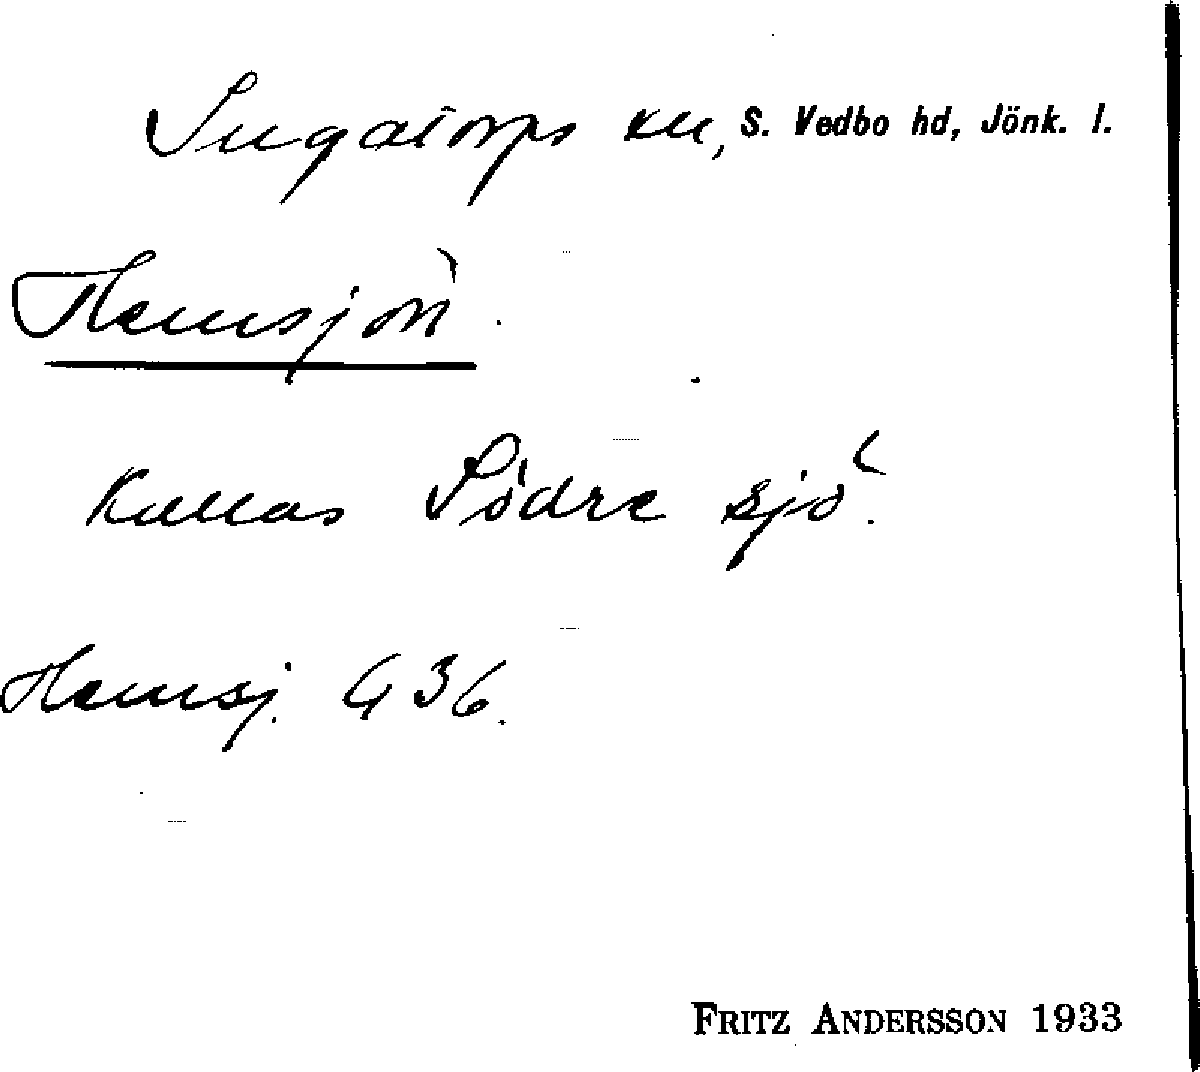 Ingatorps sn, S. Vedbo hd, Jönk. l.
Hemsjön.
Kallas Södre sjö.
Hemsj. G 36.
FRITZ ANDERSSON 1933